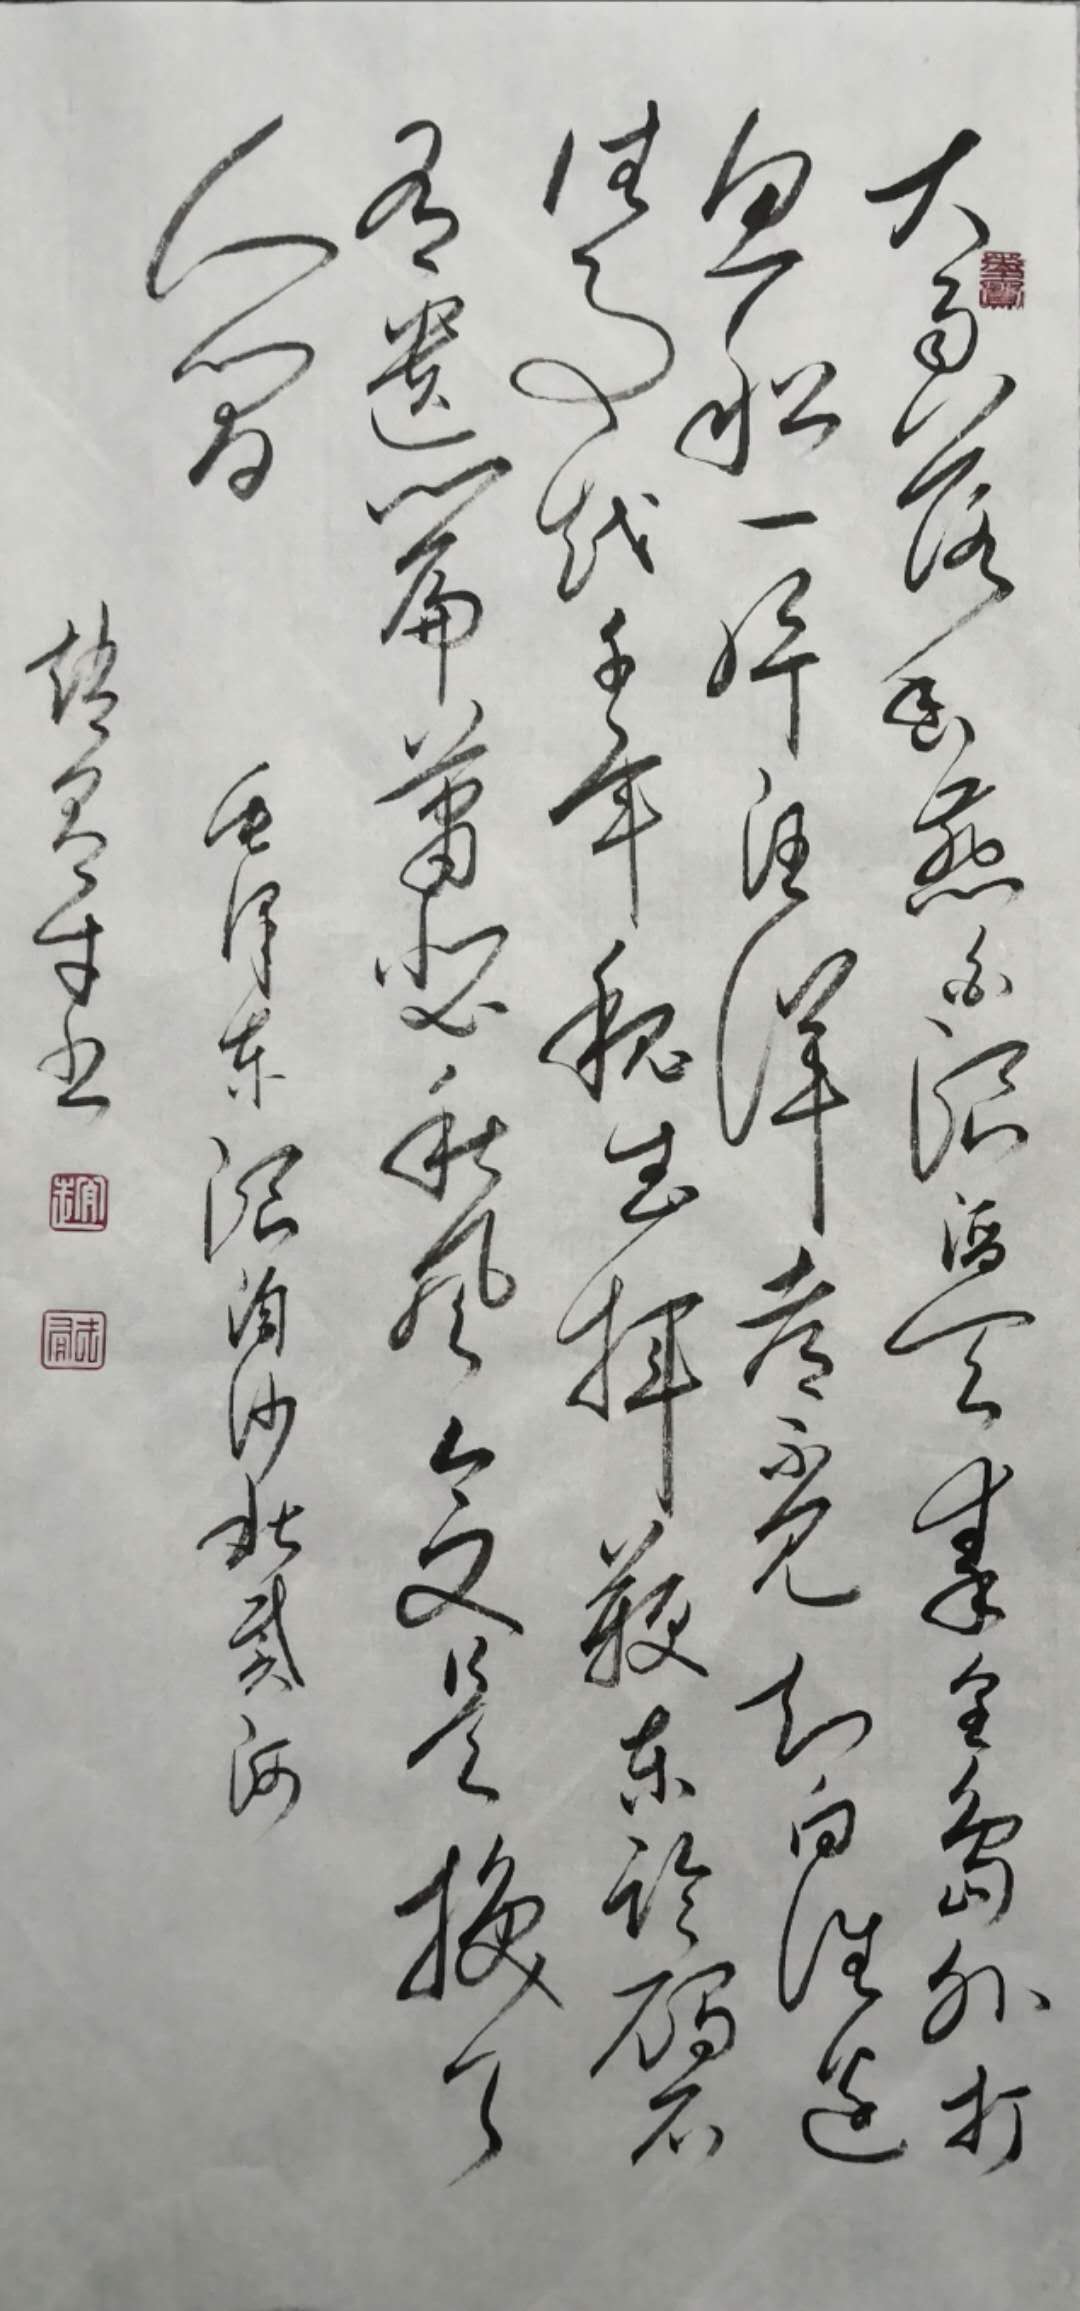 大雨落幽燕白浪滔天秦皇岛外打
鱼船一片汪洋都不见知向谁边
往事越千年魏武挥鞭东临碣石
有遗篇萧瑟秋风今又是换了
人间
毛泽东浪淘沙北戴河
赵书